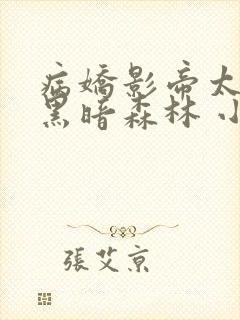 病嬌影帝太
黑暗森林 小
張艾京